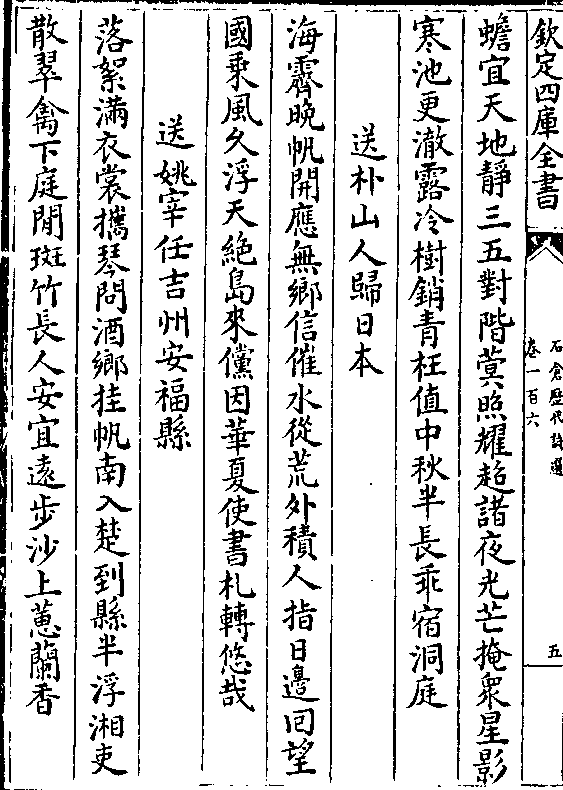 欽定四庫全書
石倉歷代詩選
卷一百六
五
蟾宜天地靜三五對階蓂照耀超諸夜光芒掩衆星影
寒池更澈露冷樹銷青枉值中秋半長乖宿洞庭
送朴山人歸日本
海霽晚帆開應無鄉信催水從荒外積人指日邊回望
國乘風久浮天絶島來儻因華夏使書札轉悠哉
送姚宰任吉州安福縣
落絮滿衣裳攜琴問酒鄉挂帆南入楚到縣半浮湘吏
散翠禽下庭閒斑竹長人安宜遠步沙上蕙蘭香